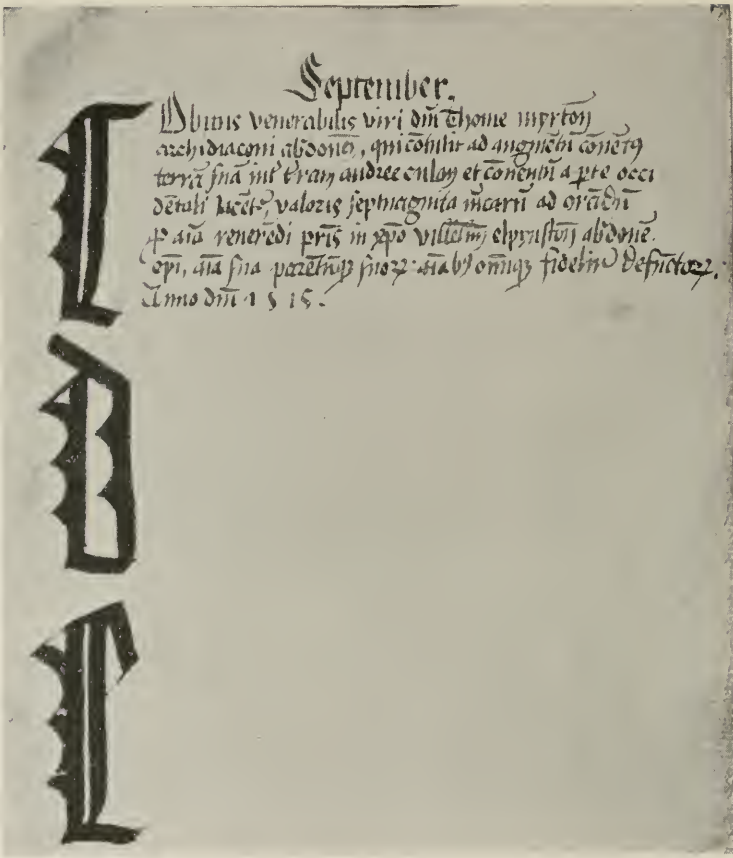 September.
Obitus venerabilis viri dñi Thome myrtoñ
archidiaconi abdoneñ, qui cōtulit ad augmētū cōnētꝯ
terrā suā int̕ t̕ram andree culañ et cōnentū a ꝑte occi
dētali iacētē, valoris septuaginta mcarū ad orādū
ꝓ aīa reuerēdi pr̄is in xp̄o villelmi elphistoñ abdoneñ
epī, aīa sua parētūqꝫ suoꝝ aīabꝫ om̄iqꝫ fideliū defūctoꝝ.
Anno dñi 1515.
C
D
C